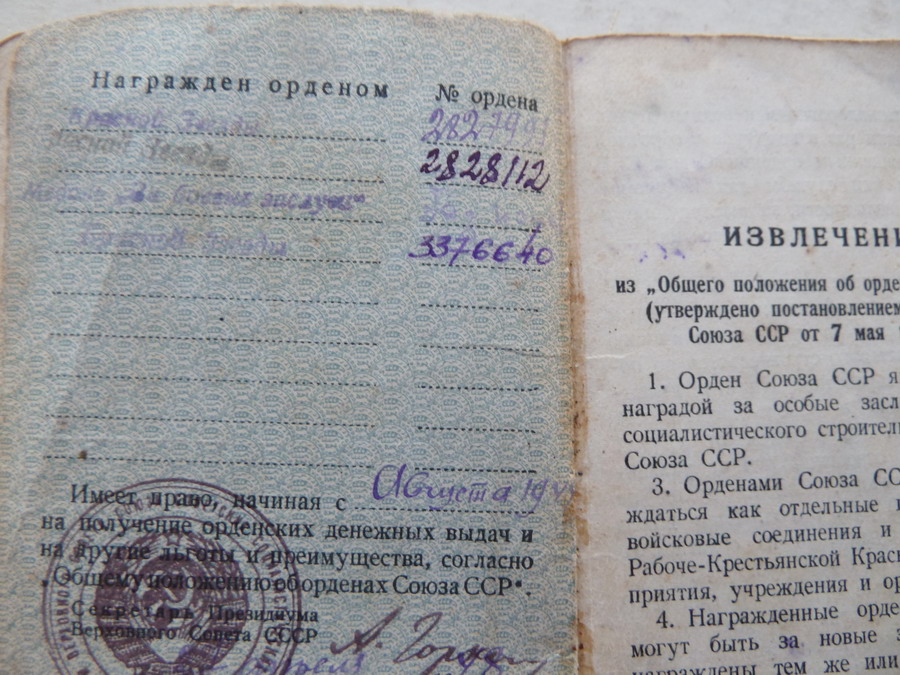 Награжден орденом № ордена
Красной Звезды
Звезды 2828112
Медаль „За боевые заслуги“
Красной Звезды 3376640
Имеет право, начиная с Августа
на получение орденских денежных выдач и
на другие льготы и преимущества, согласно
„Общему положению об орденах Союза ССР“.
Секретарь Президиума
Верховного Совета СССР
ИЗВЛЕЧЕНИ
из „Общего положения об орде
(утверждено постановлением
Союза ССР от 7 мая
1. Орден Союза ССР я
наградой за особые засл
социалистического строител
Союза ССР.
3. Орденами Союза СС
ждаться как отдельные
войсковые соединения и
Рабоче-Крестьянской Красн
приятия, учреждения и ор
4. Награжденные орде
могут быть за новые з
награждены тем же или